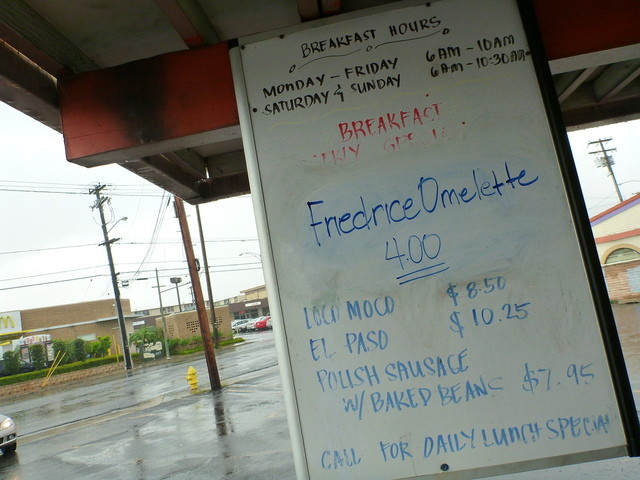 BREAKFAST HOURS
MONDAY - FRIDAY 6AM - 10AM
SATURDAY & SUNDAY 6AM - 10:30AM
BREAKFAST
Friedrice Omelette
4.00
LOCO MOCO $8.50
EL PASO $10.25
POLISH SAUSAGE
W/ BAKED BEANS $7.95
CALL FOR DAILY LUNCH SPECIAL